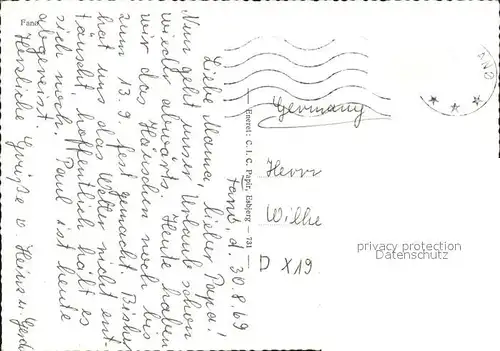 Fanö, d. 30.8.69
Liebe Mama, lieber Papa!
Nun geht unser Urlaub schon
wieder abwärts. Heute haben
wir das Häuschen noch bis
zum 13.9. fest gemacht. Bisher
hat uns das Wetter nicht ent-
täuscht, hoffentlich hält es
sich noch. Paul ist heute
abgereist.
Herzliche Grüße v. Heinz u.
Fanø
Eneret: C. I. C. Papir, Esbjerg — 731
Germany
Herrn
Wilhe
D X19
privacy protection
oldthing.de